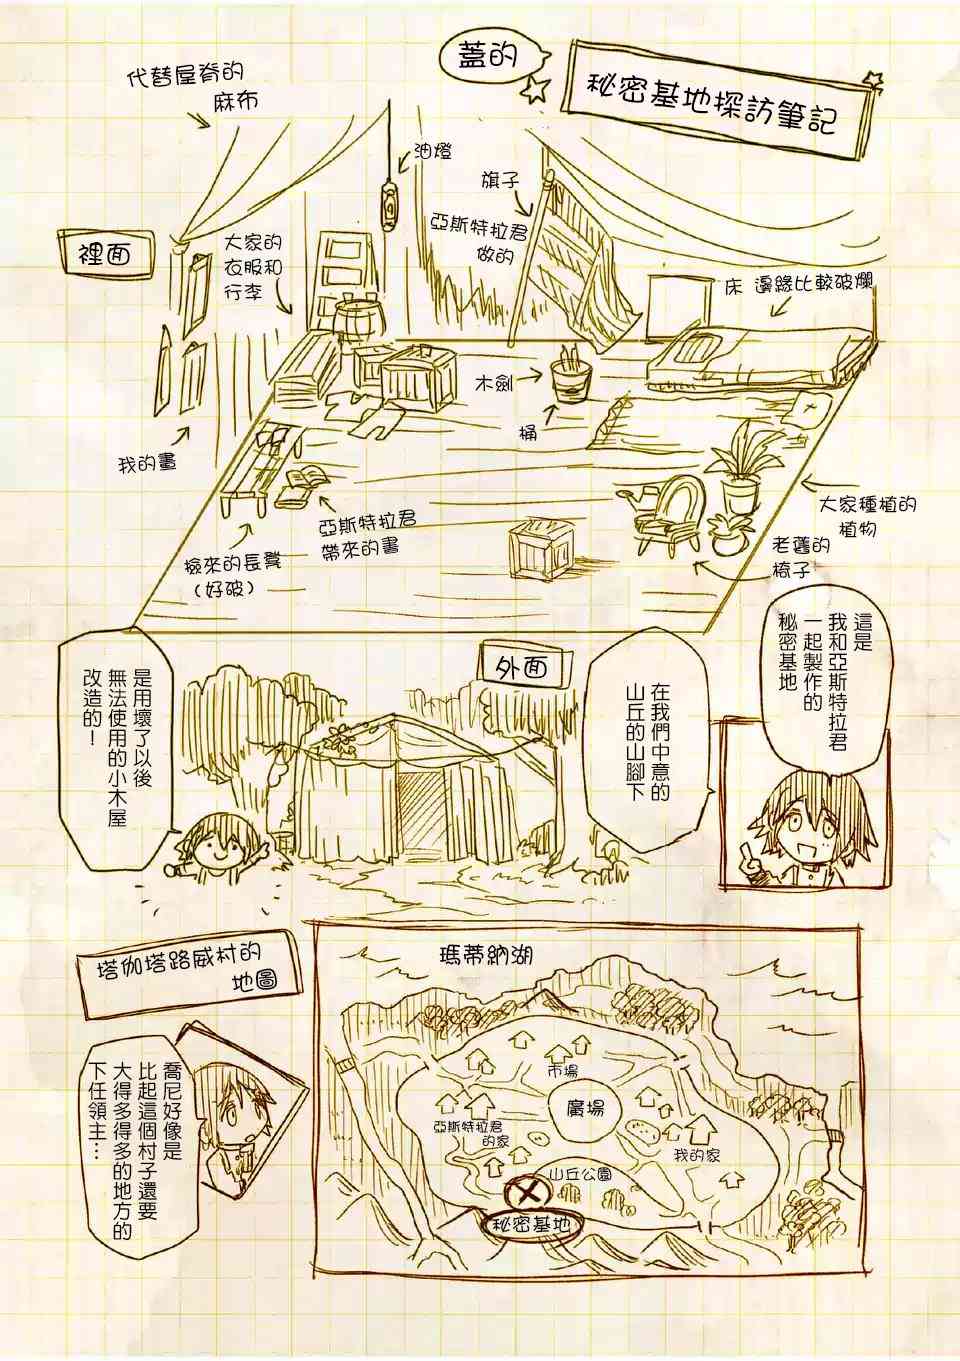 蓋的
秘密基地探訪筆記
代替屋脊的
麻布
油燈
旗子
亞斯特拉君
做的
裡面
大家的
衣服和
行李
床 邊緣比較破爛
木劍
桶
我的畫
亞斯特拉君
帶來的書
撿來的長凳
(好破)
大家種植的
植物
老舊的
椅子
這是
我和亞斯特拉君
一起製作的
秘密基地
外面
在我們中意的
山丘的山腳下
是用壞了以後
無法使用的小木屋
改造的！
塔伽塔路威村的
地圖
瑪蒂納湖
市場
廣場
亞斯特拉君
的家
我的家
山丘公園
秘密基地
喬尼好像是
比起這個村子還要
大得多得多的地方的
下任領主…